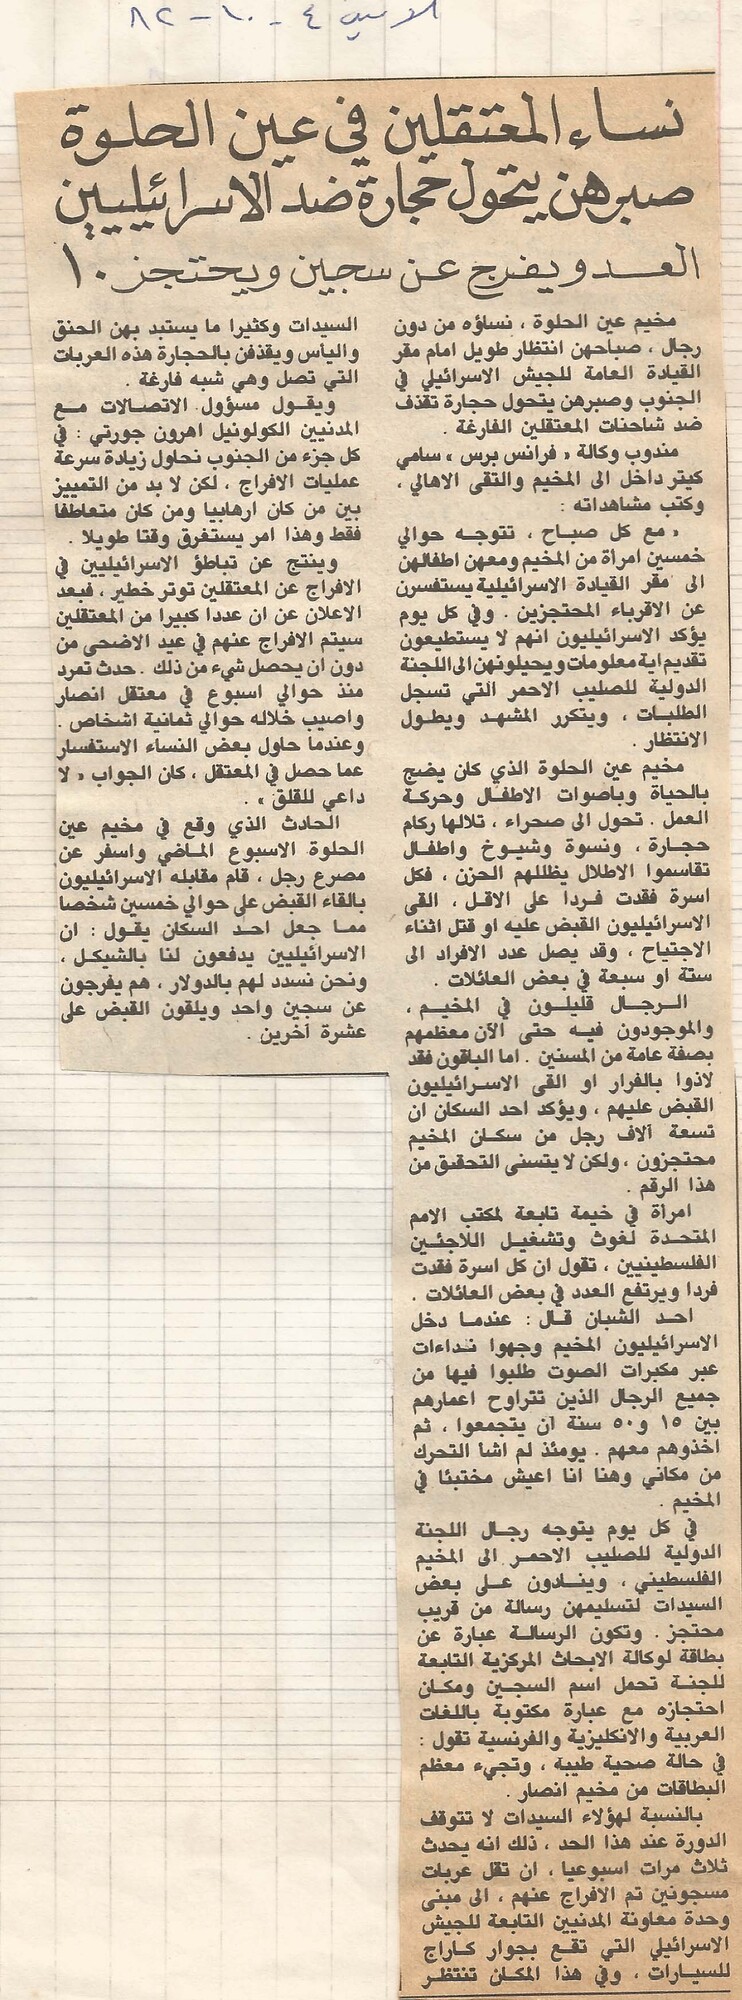 الاثنين ٤ - ١٠ - ٨٢
نساء المعتقلين في عين الحلوة
صبرهن يتحول حجارة ضد الاسرائيليين
العدو يفرج عن سجين ويحتجز ١٠
مخيم عين الحلوة ، نساؤه من دون
رجال ، صباحهن انتظار طويل امام مقر
القيادة العامة للجيش الاسرائيلي في
الجنوب وصبرهن يتحول حجارة تقذف
ضد شاحنات المعتقلين الفارغة .
مندوب وكالة « فرانس برس » سامي
كيتر داخل الى المخيم والتقى الاهالي ،
وكتب مشاهداته :
« مع كل صباح ، تتوجه حوالي
خمسين امرأة من المخيم ومعهن اطفالهن
الى مقر القيادة الاسرائيلية يستفسرن
عن الاقرباء المحتجزين . وفي كل يوم
يؤكد الاسرائيليون انهم لا يستطيعون
تقديم اية معلومات ويحيلونهن الى اللجنة
الدولية للصليب الاحمر التي تسجل
الطلبات ، ويتكرر المشهد ويطول
الانتظار .
مخيم عين الحلوة الذي كان يضج
بالحياة وباصوات الاطفال وحركة
العمل . تحول الى صحراء ، تلالها ركام
حجارة ، ونسوة وشيوخ واطفال
تقاسموا الاطلال يظللهم الحزن ، فكل
اسرة فقدت فردا على الاقل ، القى
الاسرائيليون القبض عليه او قتل اثناء
الاجتياح ، وقد يصل عدد الافراد الى
ستة او سبعة في بعض العائلات .
الرجال قليلون في المخيم ،
والموجودون فيه حتى الآن معظمهم
بصفة عامة من المسنين . اما الباقون فقد
لاذوا بالفرار او القى الاسرائيليون
القبض عليهم ، ويؤكد احد السكان ان
تسعة آلاف رجل من سكان المخيم
محتجزون ، ولكن لا يتسنى التحقيق من
هذا الرقم .
امرأة في خيمة تابعة لمكتب الامم
المتحدة لغوث وتشغيل اللاجئين
الفلسطينيين ، تقول ان كل اسرة فقدت
فردا ويرتفع العدد في بعض العائلات .
احد الشبان قال : عندما دخل
الاسرائيليون المخيم وجهوا نداءات
عبر مكبرات الصوت طلبوا فيها من
جميع الرجال الذين تتراوح اعمارهم
بين ١٥ و ٥٠ سنة ان يتجمعوا ، ثم
اخذوهم معهم . يومئذ لم اشا التحرك
من مكاني وهنا انا اعيش مختبئا في
المخيم .
في كل يوم يتوجه رجال اللجنة
الدولية للصليب الاحمر الى المخيم
الفلسطيني ، وينادون على بعض
السيدات لتسليمهن رسالة من قريب
محتجز . وتكون الرسالة عبارة عن
بطاقة لوكالة الابحاث المركزية التابعة
للجنة تحمل اسم السجين ومكان
احتجازه مع عبارة مكتوبة باللغات
العربية والانكليزية والفرنسية تقول :
في حالة صحية طيبة ، وتجيء معظم
البطاقات من مخيم انصار .
بالنسبة لهؤلاء السيدات لا تتوقف
الدورة عند هذا الحد ، ذلك انه يحدث
ثلاث مرات اسبوعيا ، ان تقل عربات
مسجونين تم الافراج عنهم ، الى مبنى
وحدة معاونة المدنيين التابعة للجيش
الاسرائيلي التي تقع بجوار كاراج
للسيارات ، وفي هذا المكان تنتظر
السيدات وكثيرا ما يستبد بهن الحنق
والياس ويقذفن بالحجارة هذه العربات
التي تصل وهي شبه فارغة .
ويقول مسؤول الاتصالات مع
المدنيين الكولونيل اهرون جورتي : في
كل جزء من الجنوب نحاول زيادة سرعة
عمليات الافراج ، لكن لا بد من التمييز
بين من كان ارهابيا ومن كان متعاطفا
فقط وهذا امر يستغرق وقتا طويلا .
وينتج عن تباطؤ الاسرائيليين في
الافراج عن المعتقلين توتر خطير ، فبعد
الاعلان عن ان عددا كبيرا من المعتقلين
سيتم الافراج عنهم في عيد الاضحى من
دون ان يحصل شيء من ذلك . حدث تمرد
منذ حوالي اسبوع في معتقل انصار
واصيب خلاله حوالي ثمانية اشخاص .
وعندما حاول بعض النساء الاستفسار
عما حصل في المعتقل ، كان الجواب « لا
داعي للقلق » .
الحادث الذي وقع في مخيم عين
الحلوة الاسبوع الماضي واسفر عن
مصرع رجل ، قام مقابله الاسرائيليون
بالقاء القبض على حوالي خمسين شخصا
مما جعل احد السكان يقول : ان
الاسرائيليين يدفعون لنا بالشيكل ،
ونحن نسدد لهم بالدولار ، هم يفرجون
عن سجين واحد ويلقون القبض على
عشرة آخرين .